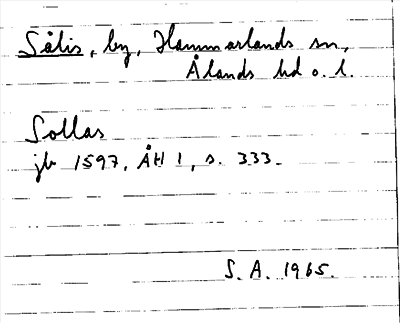 Sålis, by, Hammarlands sn,
Ålands hd o. l.
Sollas
jb 1597, ÅH 1, s. 333.
S. A. 1965.